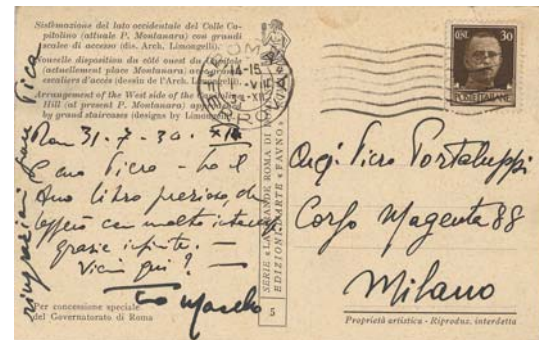 Sistemazione del lato occidentale del Colle Ca-
pitolino (attuale P. Montanara) con grandi
scalee di accesso (dis. Arch. Limongelli).
Nouvelle disposition du côté ouest du Capitole
(actuellement place Montanara) avec grands
escaliers d'accès (dessin de l'Arch. Limongelli).
Arrangement of the West side of the Capitoline
Hill (at present P. Montanara)
by grand staircases (designs by Limongelli).
31-7-34 XII
Caro Piero - ho il
tuo libro prezioso, che
leggerò con molto
grazie infinite. —
Vieni qui? —
tuo
Per concessione speciale
del Governatorato di Roma
SERIE « LA GRANDE ROMA DI
EDIZIONI D'ARTE « FAVNO »
5
14-15
VIII
XII
30
POSTE ITALIANE
Piero Portaluppi
Corso Magenta 88
Milano
Proprietà artistica - Riproduz. interdetta